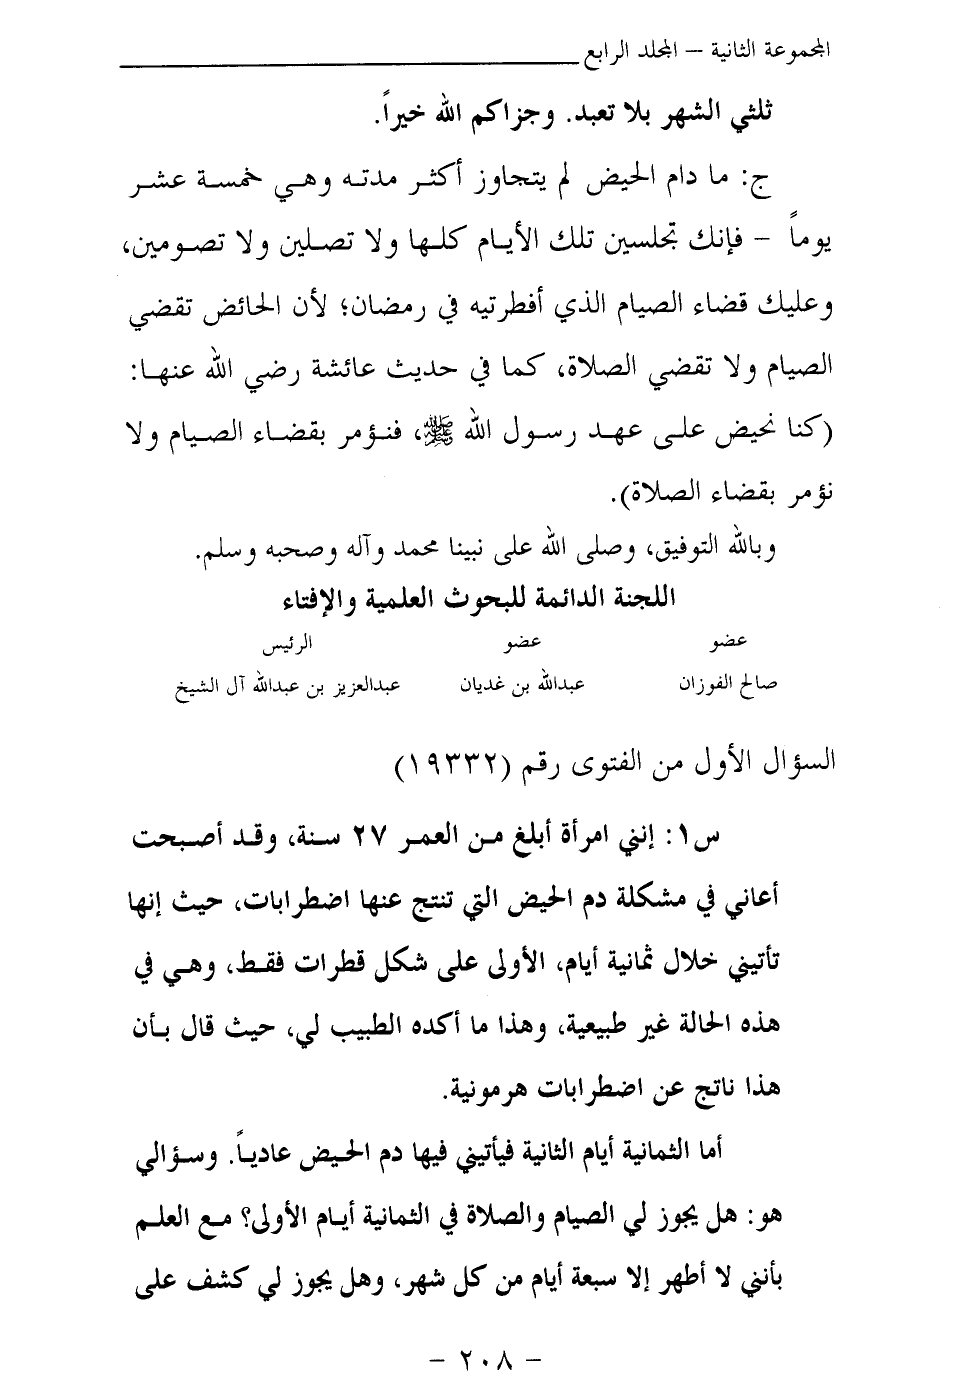 المجموعة الثانية – المجلد الرابع
ثلثي الشهر بلا تعبد. وجزاكم الله خيراً.
ج: ما دام الحيض لم يتجاوز أكثر مدته وهي خمسة عشر
يوماً – فإنك تجلسين تلك الأيام كلها ولا تصلين ولا تصومين،
وعليك قضاء الصيام الذي أفطرتيه في رمضان؛ لأن الحائض تقضي
الصيام ولا تقضي الصلاة، كما في حديث عائشة رضي الله عنها:
(كنا نحيض على عهد رسول الله ﷺ، فنؤمر بقضاء الصيام ولا
نؤمر بقضاء الصلاة).
وبالله التوفيق، وصلى الله على نبينا محمد وآله وصحبه وسلم.
اللجنة الدائمة للبحوث العلمية والإفتاء
عضو عضو الرئيس
صالح الفوزان عبدالله بن غديان عبدالعزيز بن عبدالله آل الشيخ
السؤال الأول من الفتوى رقم (١٩٣٣٢)
س١: إنني امرأة أبلغ من العمر ٢٧ سنة، وقد أصبحت
أعاني في مشكلة دم الحيض التي تنتج عنها اضطرابات، حيث إنها
تأتيني خلال ثمانية أيام، الأولى على شكل قطرات فقط، وهي في
هذه الحالة غير طبيعية، وهذا ما أكده الطبيب لي، حيث قال بأن
هذا ناتج عن اضطرابات هرمونية.
أما الثمانية أيام الثانية فيأتيني فيها دم الحيض عادياً. وسؤالي
هو: هل يجوز لي الصيام والصلاة في الثمانية أيام الأولى؟ مع العلم
بأنني لا أطهر إلا سبعة أيام من كل شهر، وهل يجوز لي كشف على
– ٢٠٨ –